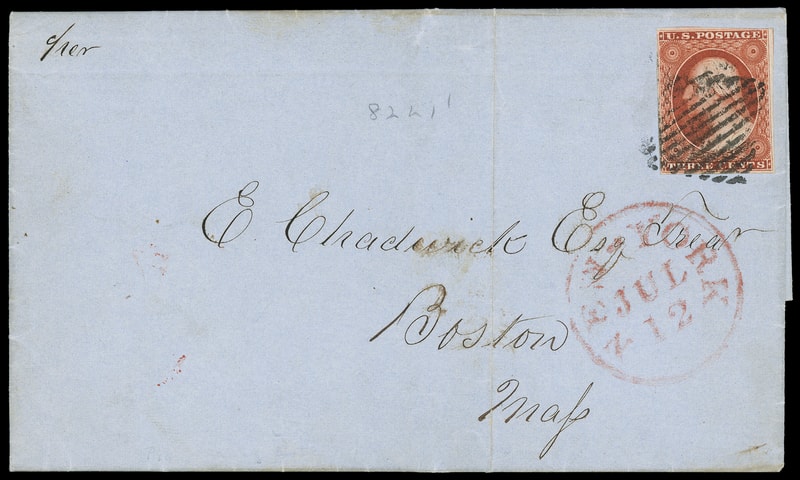 U.S. POSTAGE
THREE CENTS
8221
E. Chadwick Esq Trear
Boston
Mass
NEW-YORK
JUL
12